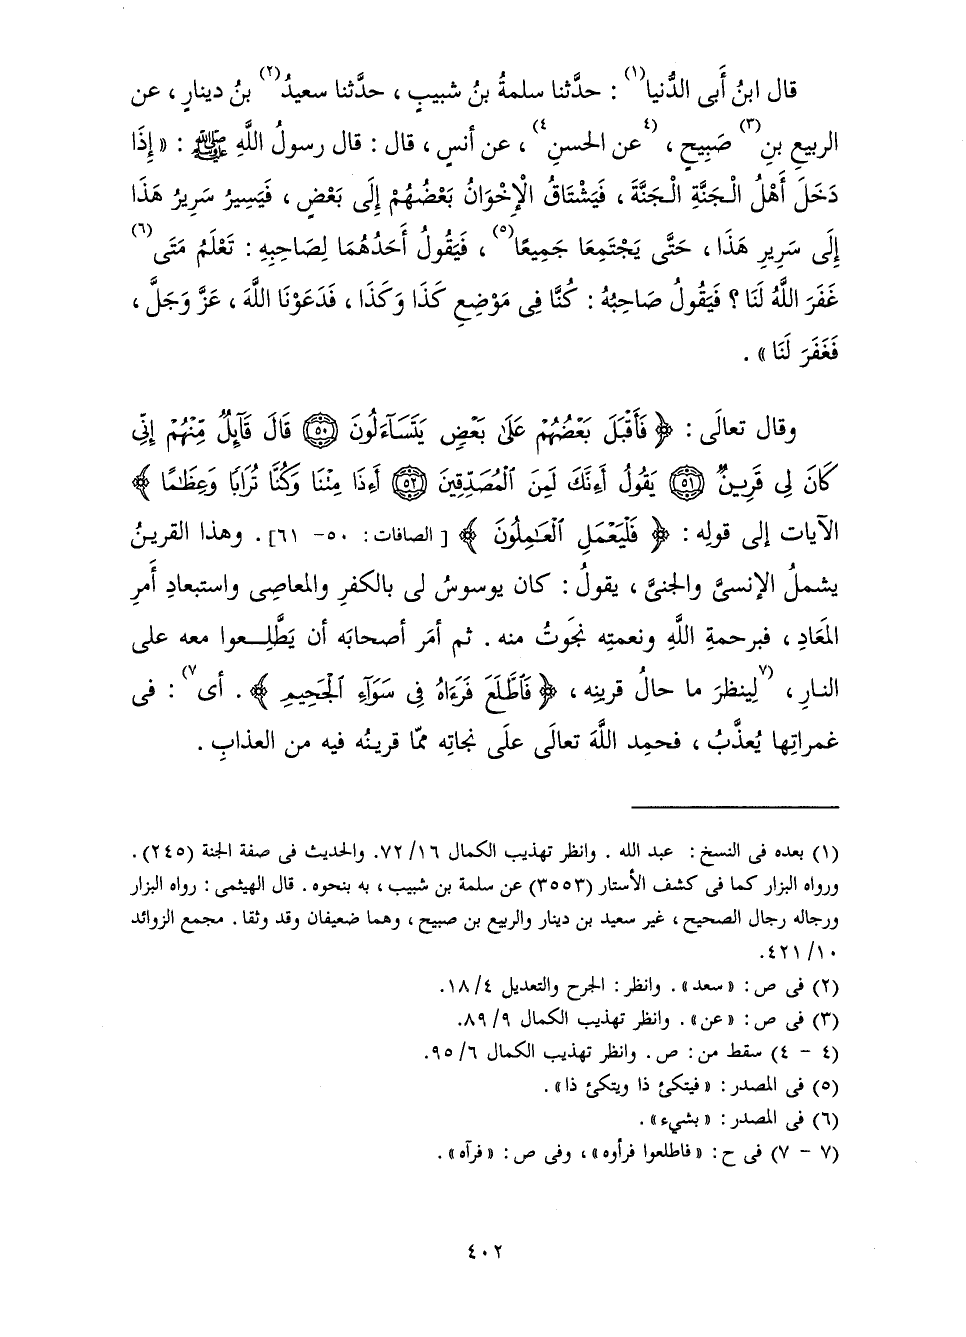 قال ابنُ أَبى الدُّنيا(١) : حدَّثنا سلمةُ بنُ شبيبٍ ، حدَّثنا سعيدُ(٢) بنُ دينارٍ ، عن
الربيعِ بنِ(٣) صَبِيحٍ ، (٤عن الحسنِ٤) ، عن أنسٍ ، قال : قال رسولُ اللَّهِ ﷺ : « إِذَا
دَخَلَ أَهْلُ الْجَنَّةِ الْجَنَّةَ ، فَيَشْتَاقُ الْإِخْوَانُ بَعْضُهُمْ إِلَى بَعْضٍ ، فَيَسِيرُ سَرِيرُ هَذَا
إِلَى سَرِيرِ هَذَا ، حَتَّى يَجْتَمِعَا جَمِيعًا(٥) ، فَيَقُولُ أَحَدُهُمَا لِصَاحِبِهِ : تَعْلَمُ مَتَى(٦)
غَفَرَ اللَّهُ لَنَا ؟ فَيَقُولُ صَاحِبُهُ : كُنَّا فِى مَوْضِعِ كَذَا وَكَذَا ، فَدَعَوْنَا اللَّهَ ، عَزَّ وَجَلَّ ،
فَغَفَرَ لَنَا » .
وقال تعالَى : ﴿ فَأَقْبَلَ بَعْضُهُمْ عَلَىٰ بَعْضٍ يَتَسَآءَلُونَ ۝٥٠ قَالَ قَآئِلٌ مِّنْهُمْ إِنِّى
كَانَ لِى قَرِينٌ ۝٥١ يَقُولُ أَءِنَّكَ لَمِنَ ٱلْمُصَدِّقِينَ ۝٥٢ أَءِذَا مِتْنَا وَكُنَّا تُرَابًا وَعِظَٰمًا ﴾
الآيات إلى قولِه : ﴿ فَلْيَعْمَلِ ٱلْعَٰمِلُونَ ﴾ [ الصافات : ٥٠- ٦١] . وهذا القرينُ
يشملُ الإنسىَّ والجنىَّ ، يقولُ : كان يوسوسُ لى بالكفرِ والمعاصِى واستبعادِ أَمرِ
المَعَادِ ، فبرحمةِ اللَّهِ ونعمتِه نجَوتُ منه . ثم أمَر أصحابَه أن يَطَّلِعوا معه على
النارِ ، (٧لِينظرَ ما حالُ قرينِه ، ﴿ فَٱطَّلَعَ فَرَءَاهُ فِى سَوَآءِ ٱلْجَحِيمِ ﴾ . أى٧) : فى
غمراتِها يُعذَّبُ ، فحمِد اللَّهَ تعالَى علَى نجاتِه ممّا قرينُه فيه من العذابِ .
(١) بعده فى النسخ : عبد الله . وانظر تهذيب الكمال ٧٢/١٦. والحديث فى صفة الجنة (٢٤٥) .
ورواه البزار كما فى كشف الأستار (٣٥٥٣) عن سلمة بن شبيب ، به بنحوه . قال الهيثمى : رواه البزار
ورجاله رجال الصحيح ، غير سعيد بن دينار والربيع بن صبيح ، وهما ضعيفان وقد وثقا . مجمع الزوائد
٤٢١/١٠.
(٢) فى ص : « سعد » . وانظر : الجرح والتعديل ١٨/٤.
(٣) فى ص : « عن » . وانظر تهذيب الكمال ٨٩/٩.
(٤ - ٤) سقط من : ص . وانظر تهذيب الكمال ٩٥/٦.
(٥) فى المصدر : « فيتكئ ذا ويتكئ ذا » .
(٦) فى المصدر : « بشيء » .
(٧ - ٧) فى ح : « فاطلعوا فرأوه » ، وفى ص : « فرآه » .
٤٠٢